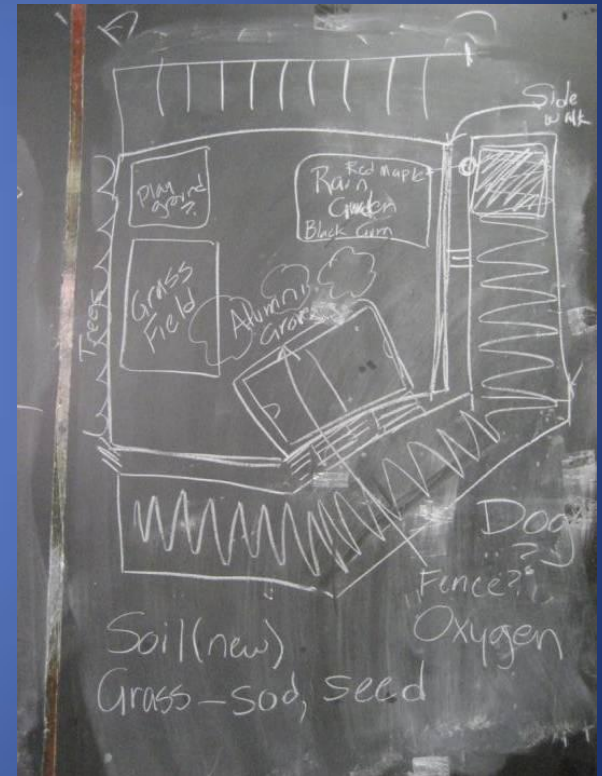 Side
walk
Play
ground
?
Red maple
Rain
Garden
Black Gum
Grass
Field
Trees
Alumni
Grove
Dog
?
Fence?
Oxygen
Soil (new)
Grass - sod, seed